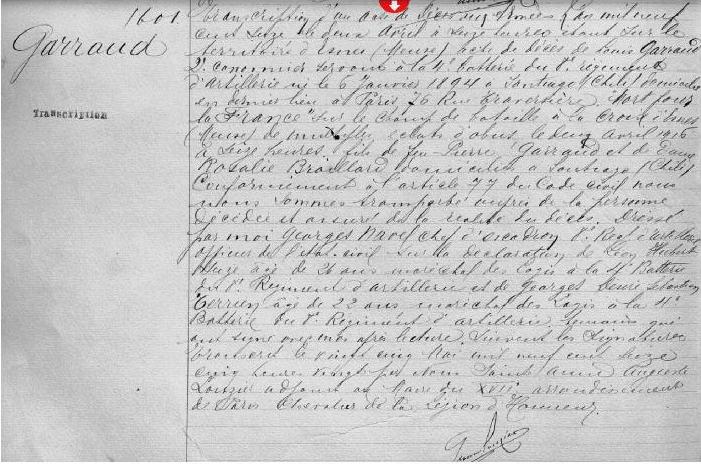 1601
Garraud
Transcription
Transcription d'un acte de décès aux Armées L'an mil neuf
cent seize le deux Avril à seize heures étant sur le
territoire d'Esnes (Meuse) acte de décès de Louis Garraud
2e canonnier servant à la 4e batterie du régiment
d'artillerie né le 6 Janvier 1894 à Santiago (Chili) domicilié
en dernier lieu à Paris, 76 Rue Traversière. Mort pour
la France sur le champ de bataille à la croix d'Esnes
(Meuse) de multiples éclats d'obus, le deux Avril 1916
à seize heures, fils de feu Pierre Garraud et de Dame
Rosalie Braillard domiciliés à Santiago (Chili)
Conformément à l'article 77 du Code civil nous
nous sommes transporté auprès de la personne
décédée et assuré de la réalité du décès. Dressé
par moi Georges Navel chef d'escadron Regt d'artillerie
officier de l'état-civil sur la déclaration de Léon Hubert
âgé de 26 ans maréchal des logis à la 4e Batterie
du Régiment d'artillerie et de Georges
Terrien âgé de 22 ans maréchal des Logis à la 4e
Batterie du Régiment d'artillerie témoins qui
ont signé avec moi après lecture. Suivent les signatures
Transcrit le vingt cinq Mai mil neuf cent seize
cinq heures vingt par Nous Auguste
adjoint au Maire du XVIIe arrondissement
de Paris Chevalier de la Légion d'Honneur.